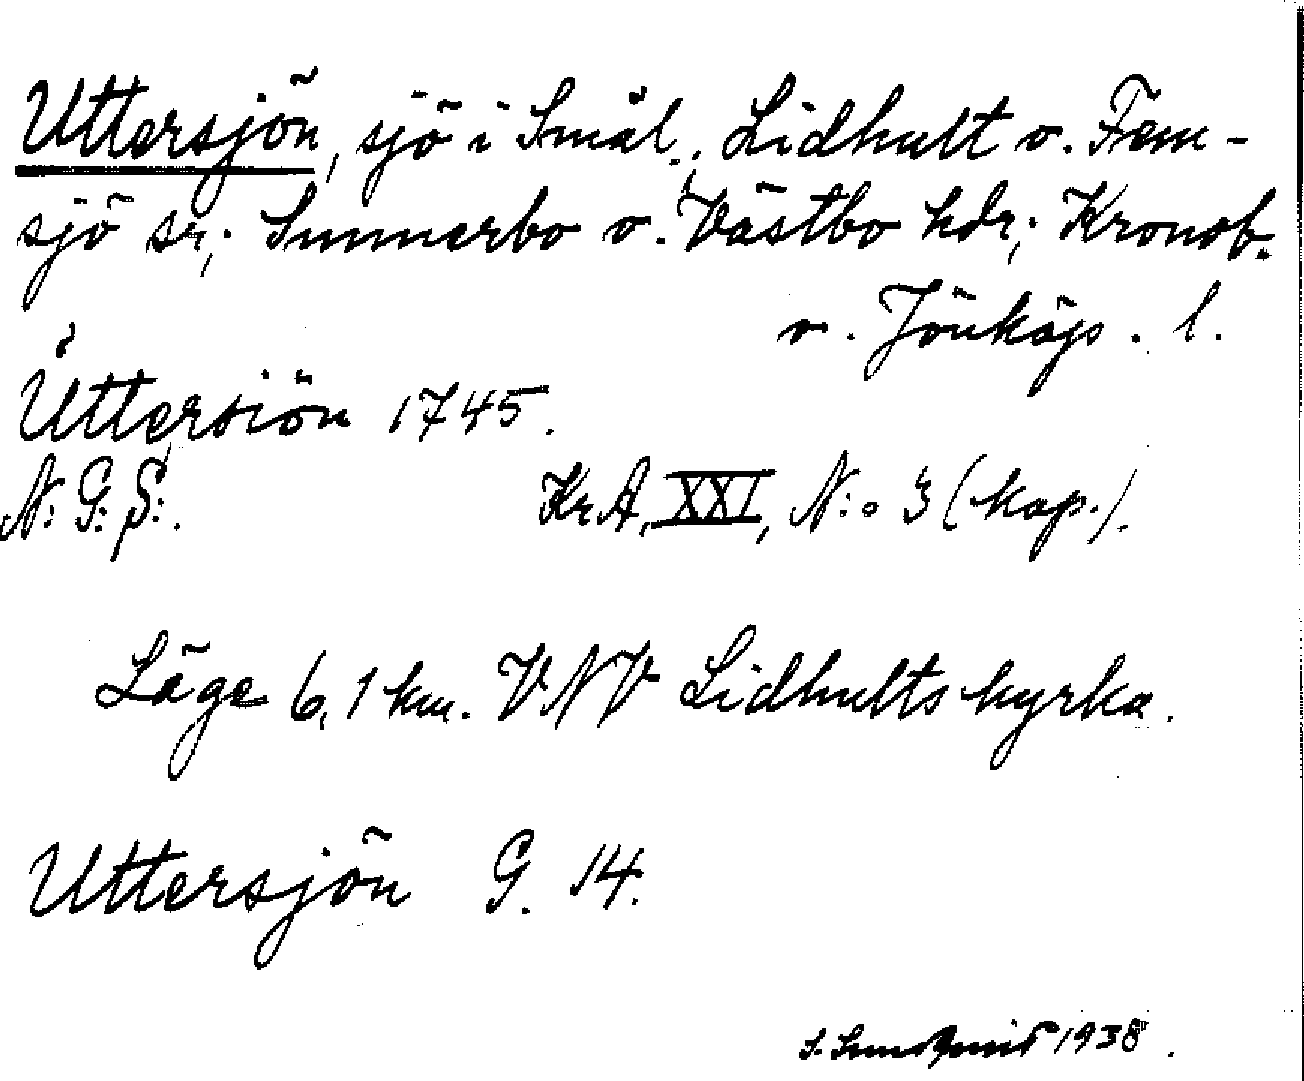 Uttersjön, sjö i Smål., Lidhult o. Fem-
sjö sr; Sunnerbo o. Västbo hdr; Kronob.
o. Jönköp. l.
Uttersiön 1745.
N: G: S:.
KrA, XXI, N:o 3 (kop.).
Läge 6,1 km. VNV Lidhults kyrka.
Uttersjön G. 14.
S. Sundqvist 1938.